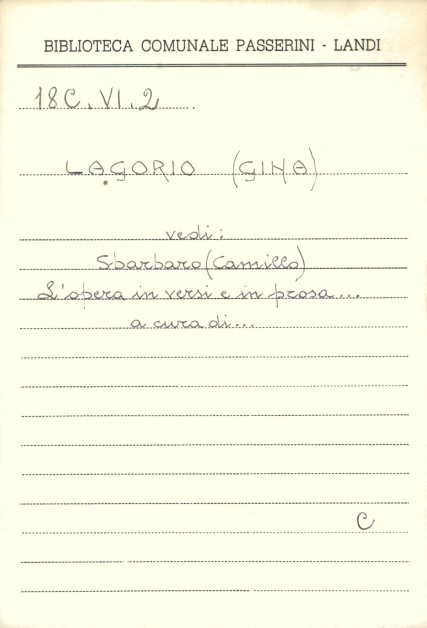 BIBLIOTECA COMUNALE PASSERINI - LANDI
18C.VI.2
LAGORIO (GINA)
vedi:
Sbarbaro (Camillo)
L'opera in versi e in prosa...
a cura di...
C